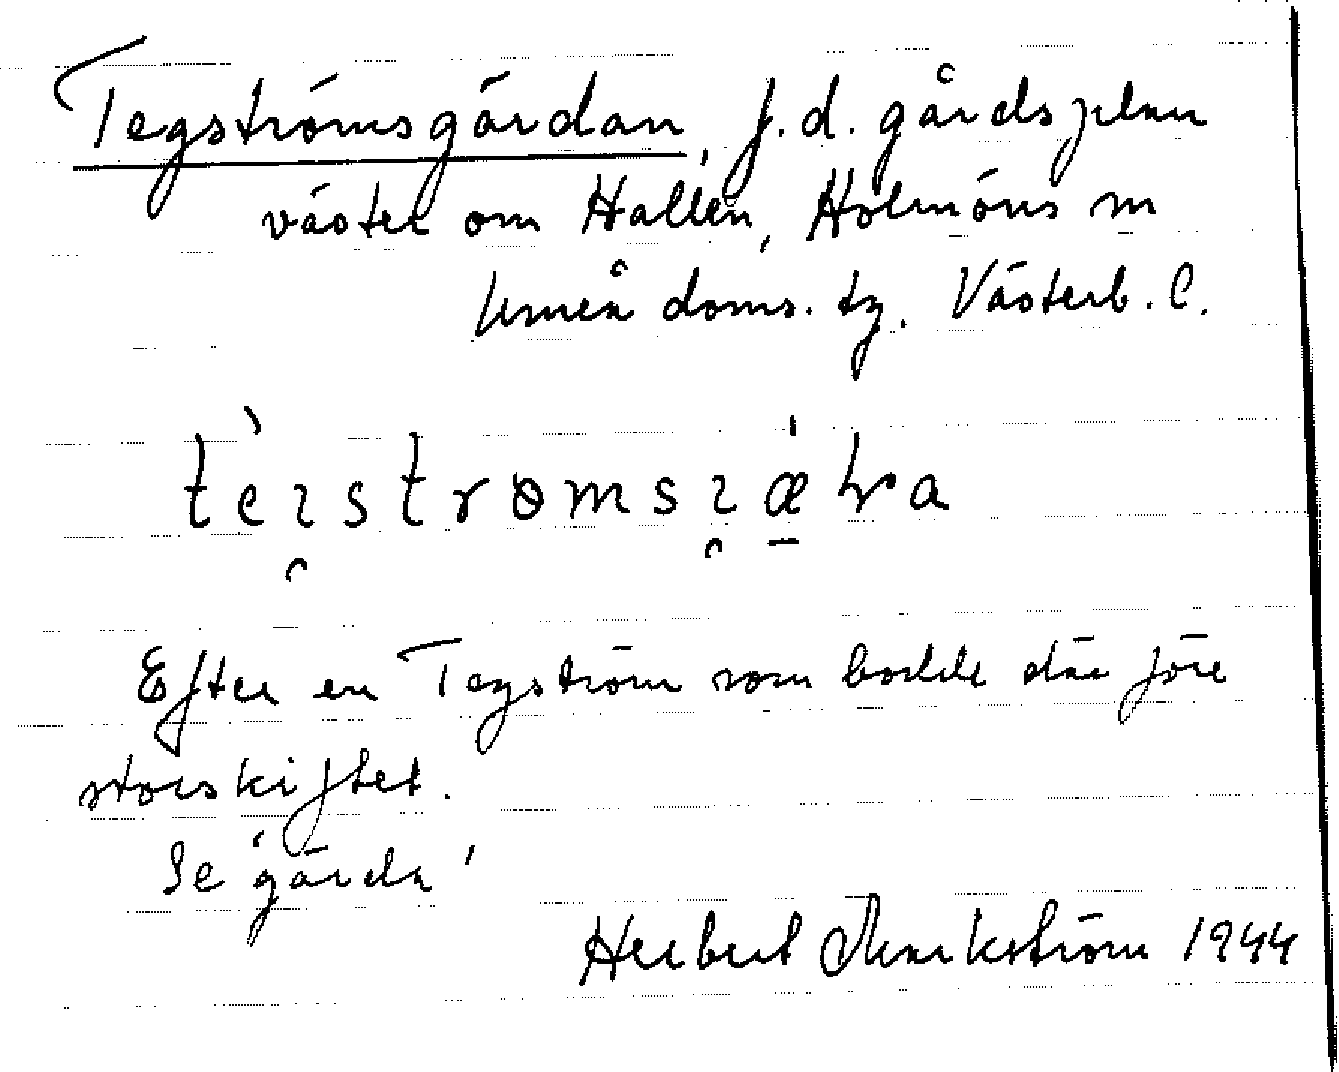 Tegströmsgärdan, f.d. gårdsplan
väster om Hallen, Holmöns sn
Umeå doms. tg. Västerb. l.
Efter en Tegström som bodde där före
storskiftet.
Se 'gärda'
Herbert Markström 1944